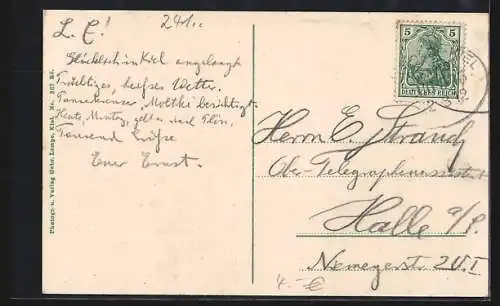 L. E!
24/..
Glücklich in Kiel angelangt
Prächtiges, heißes Wetter.
Panzerkreuzer "Moltke" besichtigt.
Heute, Montag, geht es nach Plön.
Tausend Grüße
Euer Ernst.
Photogr. u. Verlag Gebr. Lempe, Kiel. No. 267
5 5
DEUTSCHES REICH
KIEL
Herrn E. Strauch
Ober-Telegraphenassistent
Halle a/S.
Niemeyerstr. 2 V. I
4.-€